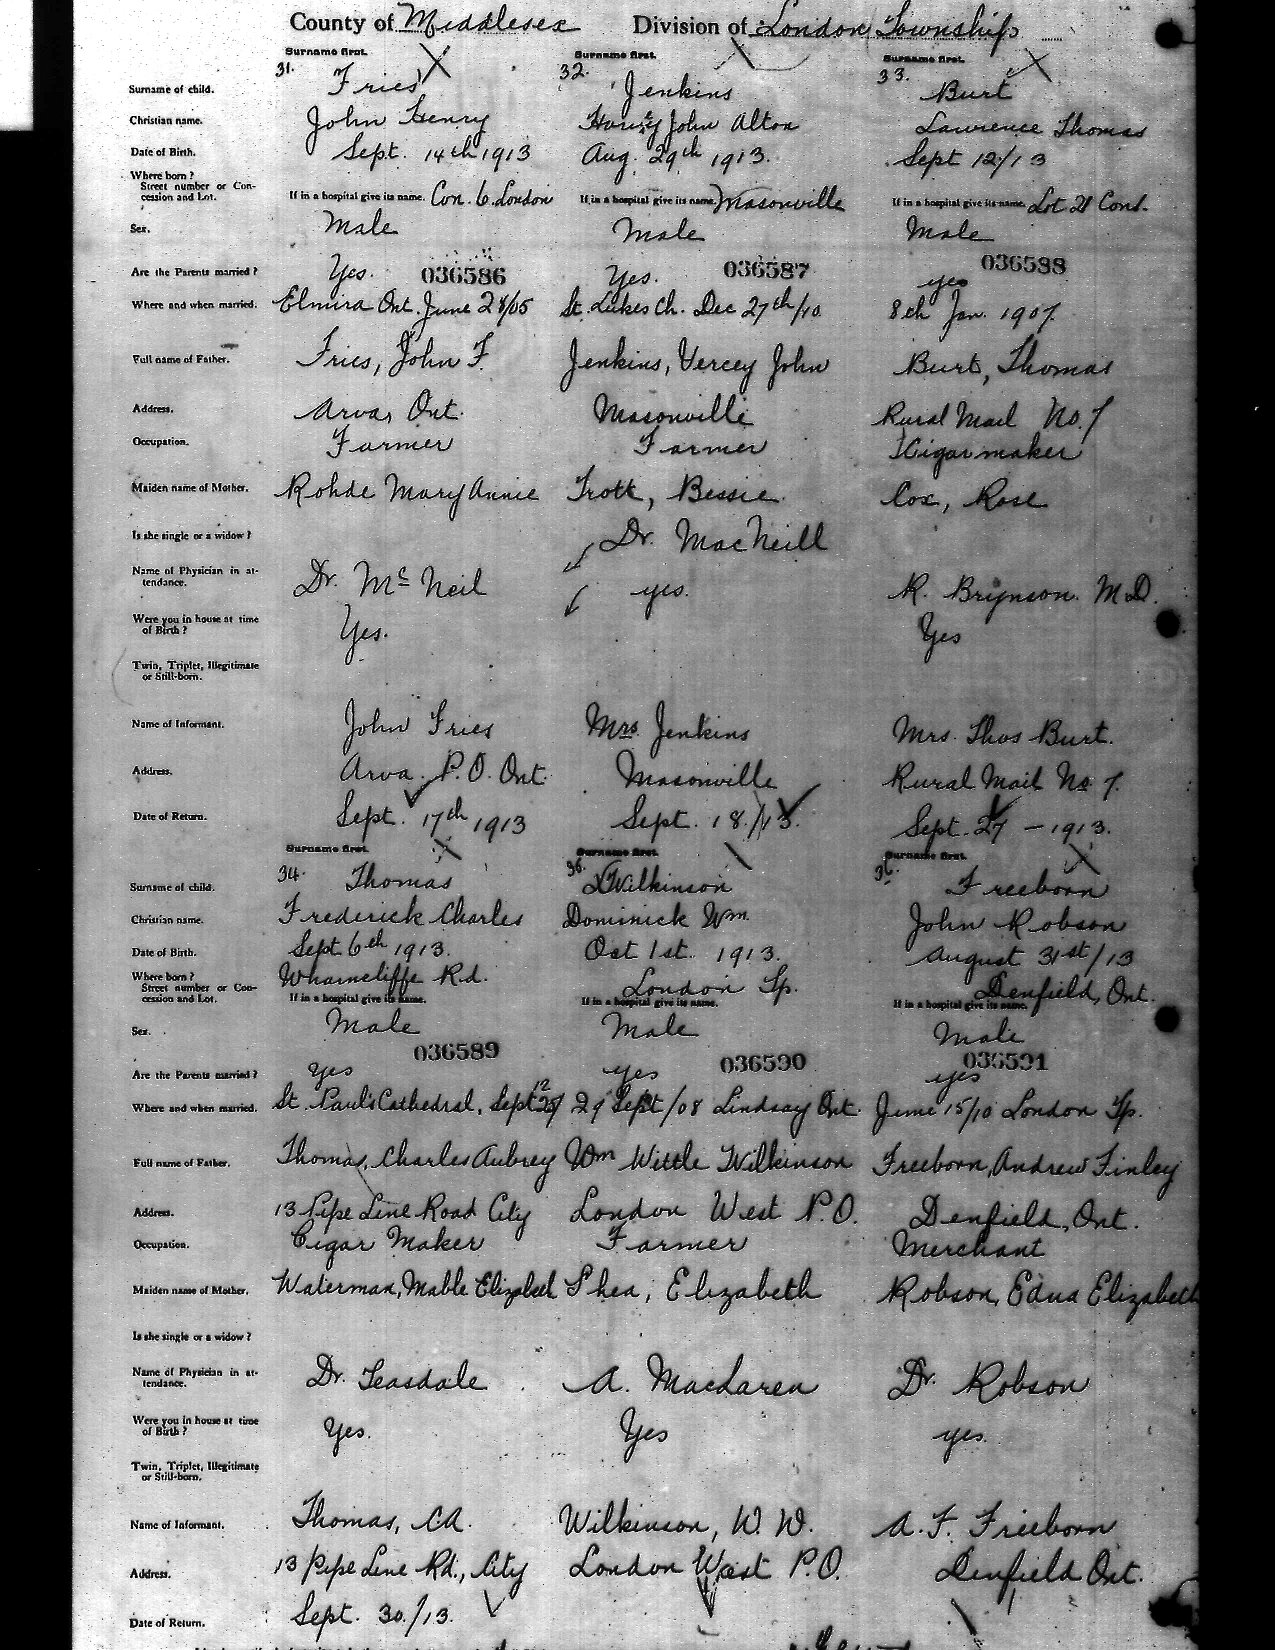 County of Middlesex Division of London Township
Surname first. Surname first. Surname first.
31. 32. 33.
Surname of child. Fries Jenkins Burt
Christian name. John Henry John Alton Lawrence Thomas
Date of Birth. Sept. 14th 1913 Aug. 29th 1913. Sept 12/13
Where born?
Street number or Concession and Lot. If in a hospital give its name. Con. 6. London If in a hospital give its name. Masonville If in a hospital give its name. Lot 21
Sex. Male Male Male
036586 036587 036588
Are the Parents married? Yes. Yes. yes
Where and when married. Elmira Ont. June 28/05 St. Lukes Ch. Dec 27th/10 8th Jan. 1907.
Full name of Father. Fries, John F. Jenkins, Vercey John Burt, Thomas
Address. Arva, Ont. Masonville Rural Mail No. 7
Occupation. Farmer Farmer Cigarmaker
Maiden name of Mother. Rohde Mary Annie Trott, Bessie Cox, Rose
Is she single or a widow? Dr. MacNeill
Name of Physician in at-
tendance. Dr. McNeil yes. R. Brynson. M.D.
Were you in house at time
of Birth? Yes. Yes
Twin, Triplet, Illegitimate
or Still-born.
Name of Informant. John Fries Mrs. Jenkins Mrs. Thos Burt.
Address. Arva. P.O. Ont. Masonville Rural Mail No 7.
Date of Return. Sept. 17th 1913 Sept. 18./13. Sept. 27 - 1913.
Surname first. Surname first. Surname first.
34. 36.
Surname of child. Thomas Wilkinson Freeborn
Christian name. Frederick Charles Dominick Wm. John Robson
Date of Birth. Sept 6th 1913. Oct 1st. 1913. August 31st/13
Where born? Wharncliffe Rd. London Tp. Denfield, Ont.
Street number or Con-
cession and Lot. If in a hospital give its name. If in a hospital give its name. If in a hospital give its name.
Sex. Male Male Male
036589 036590 036591
Are the Parents married? Yes yes yes
Where and when married. St. Paul's Cathedral, Sept 29 Sept/08 Lindsay Ont. June 15/10 London Tp.
Full name of Father. Thomas, Charles Aubrey Wm Wittle Wilkinson Freeborn, Andrew Finley
Address. 13 Pipe Line Road City London West P.O. Denfield, Ont.
Occupation. Cigar Maker Farmer Merchant
Maiden name of Mother. Waterman, Mable Elizabeth Shea, Elizabeth Robson, Edna Elizabeth
Is she single or a widow?
Name of Physician in at-
tendance. Dr. Teasdale A. MacLaren Dr. Robson
Were you in house at time
of Birth? Yes. Yes yes.
Twin, Triplet, Illegitimate
or Still-born.
Name of Informant. Thomas, C.A. Wilkinson, W. W. A. F. Freeborn
Address. 13 Pipe Line Rd., City London West P.O. Denfield Ont.
Date of Return. Sept. 30./13.